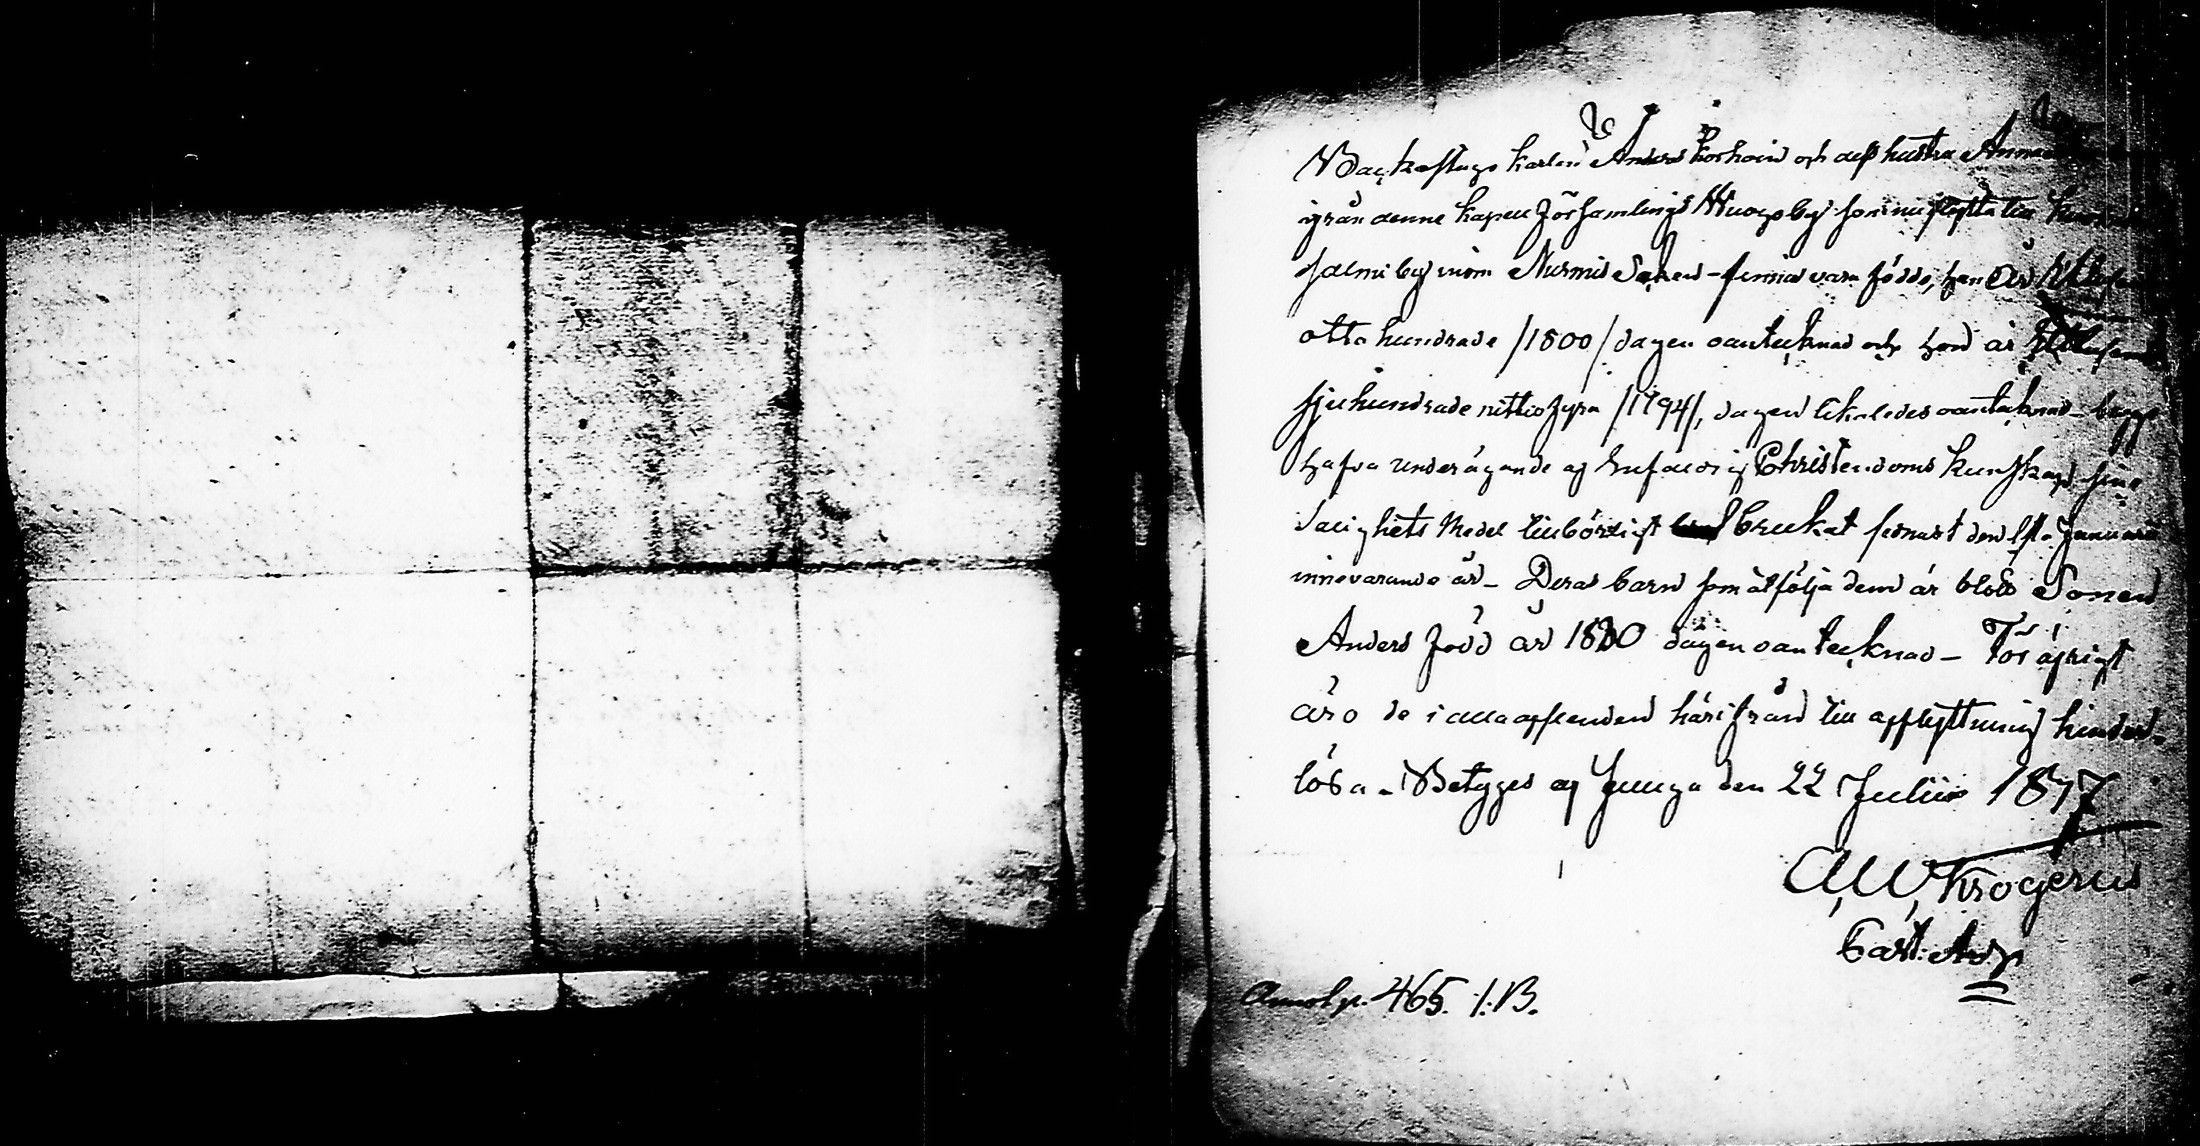 Backestugo karlen Anders Korhoin och dess hustru Anna
ifrån denne kapell Församlings by som nu flytta till
by inom Nurmis Soken - finnas vara födde, han År
otta hundrade /1800/ dagen oantecknad och hon år
sjuhundrade nittiofyra /1794/, dagen likaledes oantecknad - begge
hafva under ägande af Enfaldig Christendoms kunskap sine
Salighets Medel tillbörligt brukat sednast den Januarii
innevarande år - Deras barn som åtfölja dem är blott Sonen
Anders född år 1830 dagen oantecknad - För öfrigt
äro de i alla afseenden härifrån till afflyttning hinder-
lösa - Betyges af Juuga den 22 Julii 1847
A, W, Krogerus
Cast: Adj
pr. 465. 1. B.